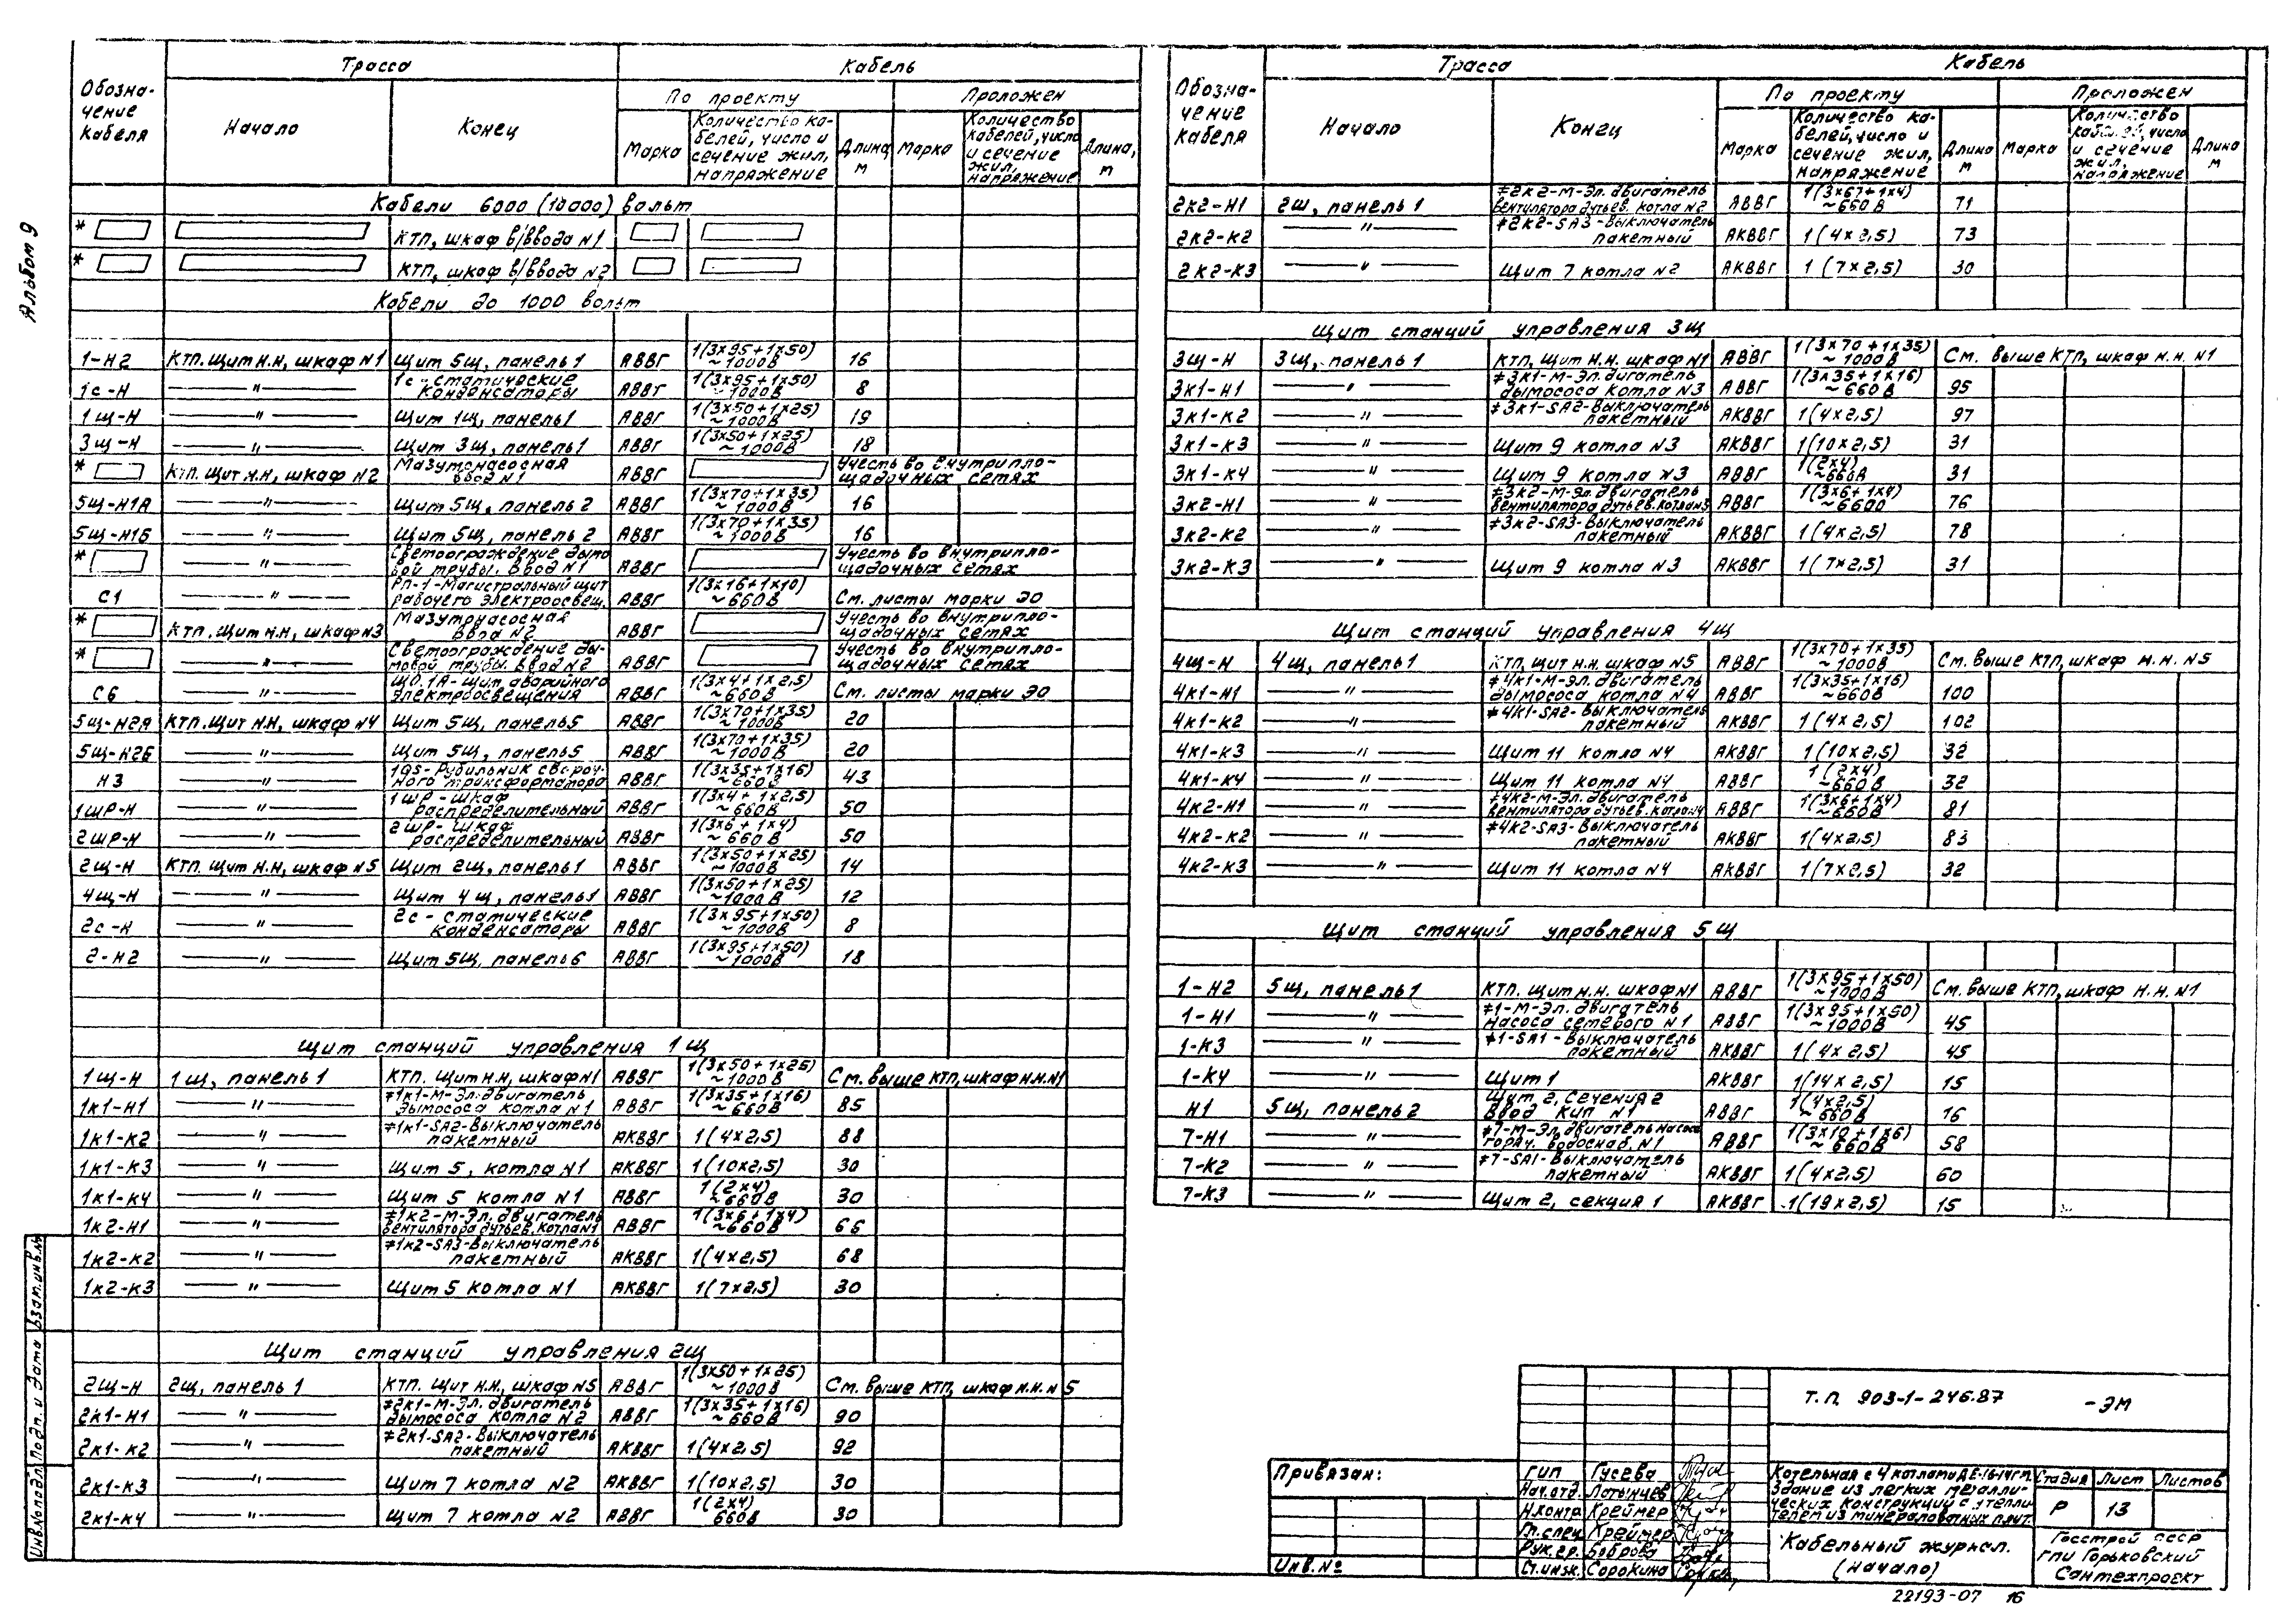 Альбом 9
Обозначение кабеля | Трасса | Кабель
Начало | Конец | По проекту | Проложен
Марка | Количество кабелей, число и сечение жил, напряжение | Длина, м | Марка | Количество кабелей, число и сечение жил, напряжение | Длина, м
Кабели 6000 (10000) вольт
* КТП, шкаф в/ввода N1
* КТП, шкаф в/ввода N2
Кабели до 1000 вольт
1-Н2 | КТП. Щит Н.Н, шкаф N1 | Щит 5щ, панель 1 | АВВГ | 1(3×95+1×50) ~1000В | 16
1с-Н | —"— | 1с-статические конденсаторы | АВВГ | 1(3×95+1×50) ~1000В | 8
1щ-Н | —"— | Щит 1щ, панель 1 | АВВГ | 1(3×50+1×25) ~1000В | 19
3щ-Н | —"— | Щит 3щ, панель 1 | АВВГ | 1(3×50+1×25) ~1000В | 18
* | КТП. Щит Н.Н, шкаф N2 | Мазутонасосная ввод N1 | АВВГ | Учесть во внутриплощадочных сетях
5щ-Н1А | —"— | Щит 5щ, панель 2 | АВВГ | 1(3×70+1×35) ~1000В | 16
5щ-Н1Б | —"— | Щит 5щ, панель 2 | АВВГ | 1(3×70+1×35) ~1000В | 16
* | —"— | Светоограждение дымовой трубы. Ввод N1 | АВВГ | Учесть во внутриплощадочных сетях
С1 | —"— | РП-1-Магистральный щит рабочего электроосвещ. | АВВГ | 1(3×16+1×10) ~660В | См. листы марки ЭО
* | КТП. Щит Н.Н, шкаф N3 | Мазутонасосная ввод N2 | АВВГ | Учесть во внутриплощадочных сетях
* | —"— | Светоограждение дымовой трубы. Ввод N2 | АВВГ | Учесть во внутриплощадочных сетях
С6 | —"— | ЩО.1А-щит аварийного электроосвещения | АВВГ | 1(3×4+1×2,5) ~660В | См. листы марки ЭО
5щ-Н2А | КТП. Щит Н.Н, шкаф N4 | Щит 5щ, панель 5 | АВВГ | 1(3×70+1×35) ~1000В | 20
5щ-Н2Б | —"— | Щит 5щ, панель 5 | АВВГ | 1(3×70+1×35) ~1000В | 20
Н3 | —"— | 1QS-Рубильник сварочного трансформатора | АВВГ | 1(3×35+1×16) ~660В | 43
1ШР-Н | —"— | 1ШР-шкаф распределительный | АВВГ | 1(3×4+1×2,5) ~660В | 50
2ШР-Н | —"— | 2ШР-шкаф распределительный | АВВГ | 1(3×6+1×4) ~660В | 50
2щ-Н | КТП. Щит Н.Н, шкаф N5 | Щит 2щ, панель 1 | АВВГ | 1(3×50+1×25) ~1000В | 14
4щ-Н | —"— | Щит 4щ, панель 1 | АВВГ | 1(3×50+1×25) ~1000В | 12
2с-Н | —"— | 2с-статические конденсаторы | АВВГ | 1(3×95+1×50) ~1000В | 8
2-Н2 | —"— | Щит 5щ, панель 6 | АВВГ | 1(3×95+1×50) ~1000В | 18
Щит станций управления 1щ
1щ-Н | 1щ, панель 1 | КТП. Щит Н.Н, шкаф N1 | АВВГ | 1(3×50+1×25) ~1000В | См. выше КТП, шкаф Н.Н. N1
1к1-Н1 | —"— | ≠1к1-М-Эл. двигатель дымососа котла N1 | АВВГ | 1(3×35+1×16) ~660В | 85
1к1-К2 | —"— | ≠1к1-SA2-Выключатель пакетный | АКВВГ | 1(4×2,5) | 88
1к1-К3 | —"— | Щит 5, котла N1 | АКВВГ | 1(10×2,5) | 30
1к1-К4 | —"— | Щит 5 котла N1 | АВВГ | 1(2×4) ~660В | 30
1к2-Н1 | —"— | ≠1к2-М-Эл. двигатель вентилятора дутьев. котла N1 | АВВГ | 1(3×6+1×4) ~660В | 66
1к2-К2 | —"— | ≠1к2-SA3-Выключатель пакетный | АКВВГ | 1(4×2,5) | 68
1к2-К3 | —"— | Щит 5 котла N1 | АКВВГ | 1(7×2,5) | 30
Щит станций управления 2щ
2щ-Н | 2щ, панель 1 | КТП. Щит Н.Н., шкаф N5 | АВВГ | 1(3×50+1×25) ~1000В | См. выше КТП, шкаф Н.Н. N5
2к1-Н1 | —"— | ≠2к1-М-Эл. двигатель дымососа котла N2 | АВВГ | 1(3×35+1×16) ~660В | 90
2к1-К2 | —"— | ≠2к1-SA2-Выключатель пакетный | АКВВГ | 1(4×2,5) | 92
2к1-К3 | —"— | Щит 7 котла N2 | АКВВГ | 1(10×2,5) | 30
2к1-К4 | —"— | Щит 7 котла N2 | АВВГ | 1(2×4) 660В | 30
Обозначение кабеля | Трасса | Кабель
Начало | Конец | По проекту | Проложен
Марка | Количество кабелей, число и сечение жил, напряжение | Длина м | Марка | Количество кабелей, число и сечение жил, напряжение | Длина м
2к2-Н1 | 2щ, панель 1 | ≠2к2-М-Эл. двигатель вентилятора дутьев. котла N2 | АВВГ | 1(3×6+1×4) ~660В | 71
2к2-К2 | —"— | ≠2к2-SA3-Выключатель пакетный | АКВВГ | 1(4×2,5) | 73
2к2-К3 | —"— | Щит 7 котла N2 | АКВВГ | 1(7×2,5) | 30
Щит станций управления 3щ
3щ-Н | 3щ, панель 1 | КТП, Щит Н.Н. шкаф N1 | АВВГ | 1(3×70+1×35) ~1000В | См. выше КТП, шкаф Н.Н. N1
3к1-Н1 | —"— | ≠3к1-М-Эл. двигатель дымососа котла N3 | АВВГ | 1(3×35+1×16) ~660В | 95
3к1-К2 | —"— | ≠3к1-SA2-Выключатель пакетный | АКВВГ | 1(4×2,5) | 97
3к1-К3 | —"— | Щит 9 котла N3 | АКВВГ | 1(10×2,5) | 31
3к1-К4 | —"— | Щит 9 котла N3 | АВВГ | 1(2×4) ~660В | 31
3к2-Н1 | —"— | ≠3к2-М-Эл. двигатель вентилятора дутьев. котла N3 | АВВГ | 1(3×6+1×4) ~660В | 76
3к2-К2 | —"— | ≠3к2-SA3-Выключатель пакетный | АКВВГ | 1(4×2,5) | 78
3к2-К3 | —"— | Щит 9 котла N3 | АКВВГ | 1(7×2,5) | 31
Щит станций управления 4щ
4щ-Н | 4щ, панель 1 | КТП, щит Н.Н. шкаф N5 | АВВГ | 1(3×70+1×35) ~1000В | См. выше КТП, шкаф Н.Н. N5
4к1-Н1 | —"— | ≠4к1-М-Эл. двигатель дымососа котла N4 | АВВГ | 1(3×35+1×16) ~660В | 100
4к1-К2 | —"— | ≠4к1-SA2-Выключатель пакетный | АКВВГ | 1(4×2,5) | 102
4к1-К3 | —"— | Щит 11 котла N4 | АКВВГ | 1(10×2,5) | 32
4к1-К4 | —"— | Щит 11 котла N4 | АВВГ | 1(2×4) ~660В | 32
4к2-Н1 | —"— | ≠4к2-М-Эл. двигатель вентилятора дутьев. котла N4 | АВВГ | 1(3×6+1×4) ~660В | 81
4к2-К2 | —"— | ≠4к2-SA3-Выключатель пакетный | АКВВГ | 1(4×2,5) | 83
4к2-К3 | —"— | Щит 11 котла N4 | АКВВГ | 1(7×2,5) | 32
Щит станций управления 5щ
1-Н2 | 5щ, панель 1 | КТП. Щит Н.Н. шкаф N1 | АВВГ | 1(3×95+1×50) ~1000В | См. выше КТП, шкаф Н.Н. N1
1-Н1 | —"— | ≠1-М-Эл. двигатель насоса сетевого N1 | АВВГ | 1(3×95+1×50) ~1000В | 45
1-К3 | —"— | ≠1-SA1-Выключатель пакетный | АКВВГ | 1(4×2,5) | 45
1-К4 | —"— | Щит 1 | АКВВГ | 1(14×2,5) | 15
Н1 | 5щ, панель 2 | Щит 2, Сечения 2 Ввод КИП N1 | АВВГ | 1(4×2,5) ~660В | 16
7-Н1 | —"— | ≠7-М-Эл. двигатель насоса горяч. водоснаб. N1 | АВВГ | 1(3×10+1×6) ~660В | 58
7-К2 | —"— | ≠7-SA1-Выключатель пакетный | АКВВГ | 1(4×2,5) | 60
7-К3 | —"— | Щит 2, секция 1 | АКВВГ | 1(19×2,5) | 15
Инв.N подл. | Подп. и дата | Взам. инв. N
Привязан:
Инв. №
Т.П. 903-1-246.87 -ЭМ
ГИП Гусева
Нач. отд. Лотынцев
Н.контр Креймер
Гл. спец. Креймер
Рук. гр. Боброва
Ст. инж. Сорокина
Котельная с 4 котлами ДЕ-16-14ГМ.
Здание из легких металли-
ческих конструкций с утепли-
телем из минераловатных плит.
Стадия | Лист | Листов
Р | 13
Кабельный журнал.
(начало)
Госстрой СССР
ГПИ Горьковский
Сантехпроект
22193-07 16